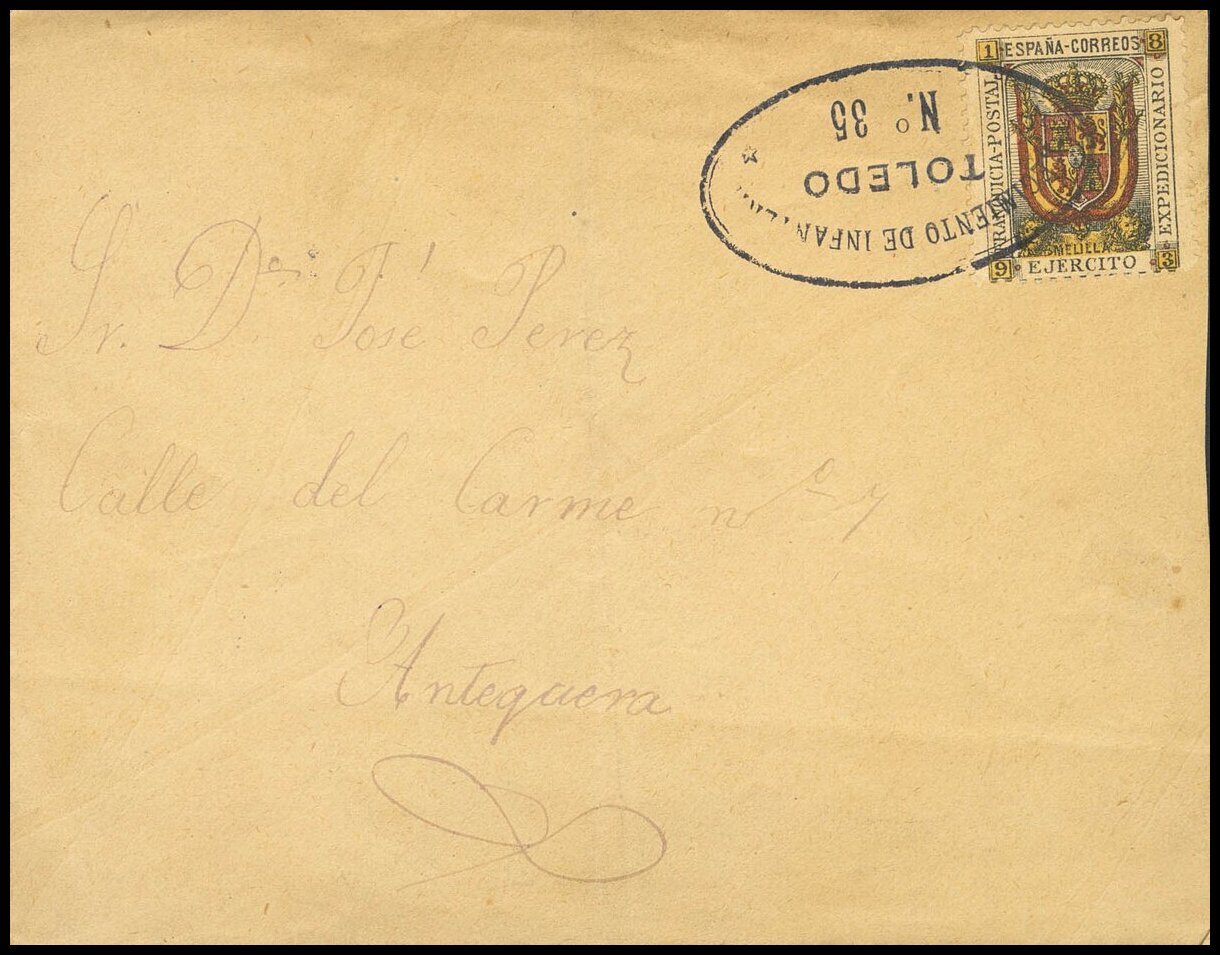 1 ESPAÑA-CORREOS 8
FRANQUICIA-POSTAL
EXPEDICIONARIO
MELILLA
9 EJERCITO 3
TOLEDO
N.º 35
MIENTO DE INFAN
Sr. Dn José Perez
Calle del Carme nº 7
Antequera